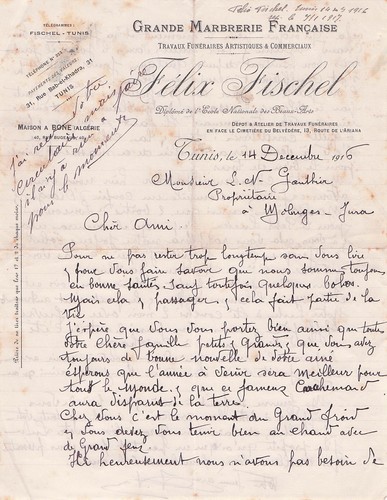 Félix Fischel. Tunis 14 Dec 1916
le 7/1 1917.
TÉLÉGRAMMES :
FISCHEL - TUNIS
GRANDE MARBRERIE FRANÇAISE
TRAVAUX FUNÉRAIRES ARTISTIQUES & COMMERCIAUX
TÉLÉPHONE Nº
31, Rue Bab-el-Khadra, 31
TUNIS
Félix Fischel
Diplômé de l'École Nationale des Beaux-Arts
MAISON A BONE (ALGÉRIE)
DÉPÔT & ATELIER DE TRAVAUX FUNÉRAIRES
EN FACE LE CIMETIÈRE DU BELVÉDÈRE, 13, ROUTE DE L'ARIANA
j'ai reçu votre
circulaire mais
il n'y a rien à faire
pour le moment
Tunis, le 14 Decembre 1916
Monsieur L. N. Gauthier
Proprietaire
à Molinges - Jura
Chèr Ami -
Pour ne pas rester trop longtemp sans vous lire
& pour vous faire savoir que nous somme toujours
en bonne santée - sauf toutefois quelques bobos.
Mais cela & passager, & cela fait partie de la
vie
J'éspère que vous vous portez bien ainsi que toute
votre chère famille petits & grands, que vous avez
toujours de bonne nouvelle de votre ainé
espérons que l'année à venir sera meilleur pour
tout le monde, & que ce fameux Cauchemard
aura disparut de la terre.
Chez vous c'est le moment du Grand froid
& vous devez vous tenir bien au chaud avec
de Grand feux
Ici heureusement nous n'avons pas besoin de